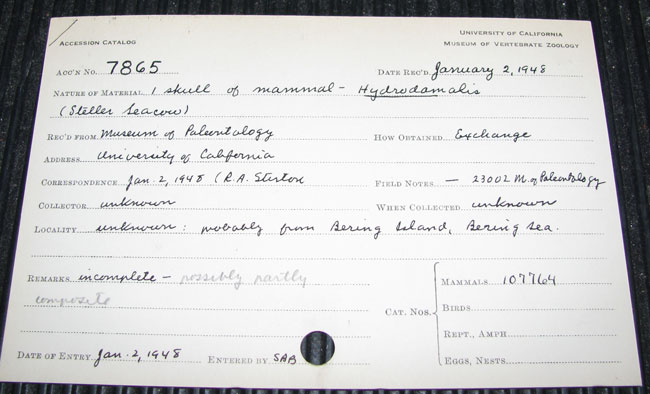 UNIVERSITY OF CALIFORNIA
ACCESSION CATALOG MUSEUM OF VERTEBRATE ZOOLOGY
ACC'N NO. 7865 DATE REC'D. January 2, 1948
NATURE OF MATERIAL 1 skull of mammal - Hydrodamalis
(Steller Seacow)
REC'D FROM Museum of Paleontology HOW OBTAINED Exchange
ADDRESS University of California
CORRESPONDENCE Jan. 2, 1948 (R.A. Stirton FIELD NOTES — 23002 M. of Paleontology
COLLECTOR unknown WHEN COLLECTED unknown
LOCALITY unknown: probably from Bering Island, Bering Sea.
REMARKS incomplete - possibly partly
composite
CAT. NOS.
MAMMALS 107764
BIRDS
REPT., AMPH
EGGS, NESTS
DATE OF ENTRY Jan. 2, 1948 ENTERED BY SBB